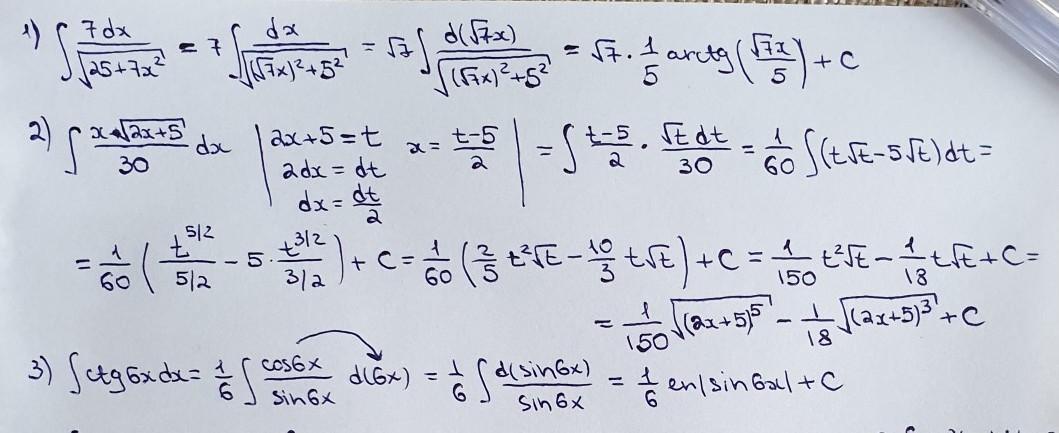 1) ∫ 7dx/√(25+7x²) = 7 ∫ dx/√((√7x)²+5²) = √7 ∫ d(√7x)/√((√7x)²+5²) = √7 · 1/5 arctg(√7x/5) + C
2) ∫ x√(2x+5)/30 dx | 2x+5=t x = (t-5)/2 2dx = dt dx = dt/2 | = ∫ (t-5)/2 · √t dt/30 = 1/60 ∫(t√t-5√t)dt =
= 1/60 (t^(5/2)/(5/2) - 5 · t^(3/2)/(3/2)) + C = 1/60 (2/5 t²√t - 10/3 t√t) + C = 1/150 t²√t - 1/18 t√t + C =
= 1/150 √((2x+5)⁵) - 1/18 √((2x+5)³) + C
3) ∫ctg6xdx = 1/6 ∫ cos6x/sin6x d(6x) = 1/6 ∫ d(sin6x)/sin6x = 1/6 ln|sin6x| + C